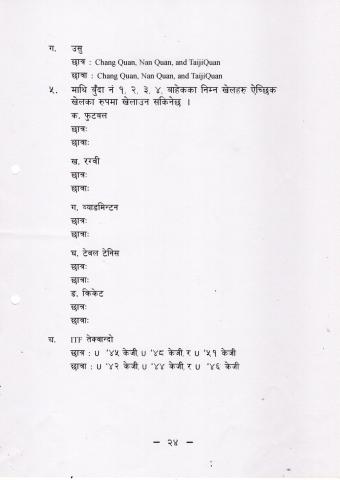 ग. उसु
छात्र : Chang Quan, Nan Quan, and TaijiQuan
छात्रा : Chang Quan, Nan Quan, and TaijiQuan
५. माथि बुँदा नं १, २, ३, ४, बाहेकका निम्न खेलहरु ऐच्छिक
खेलका रुपमा खेलाउन सकिनेछ ।
क. फुटबल
छात्रः
छात्राः
ख. रग्वी
छात्रः
छात्राः
ग. व्याडमिन्टन
छात्रः
छात्राः
घ. टेबल टेनिस
छात्रः
छात्राः
ङ. क्रिकेट
छात्रः
छात्राः
च. ITF तेक्वान्दो
छात्र : U '४५ केजी, U '४८ केजी, र U '५१ केजी
छात्रा : U '४२ केजी, U '४४ केजी, र U '४६ केजी
– २४ –